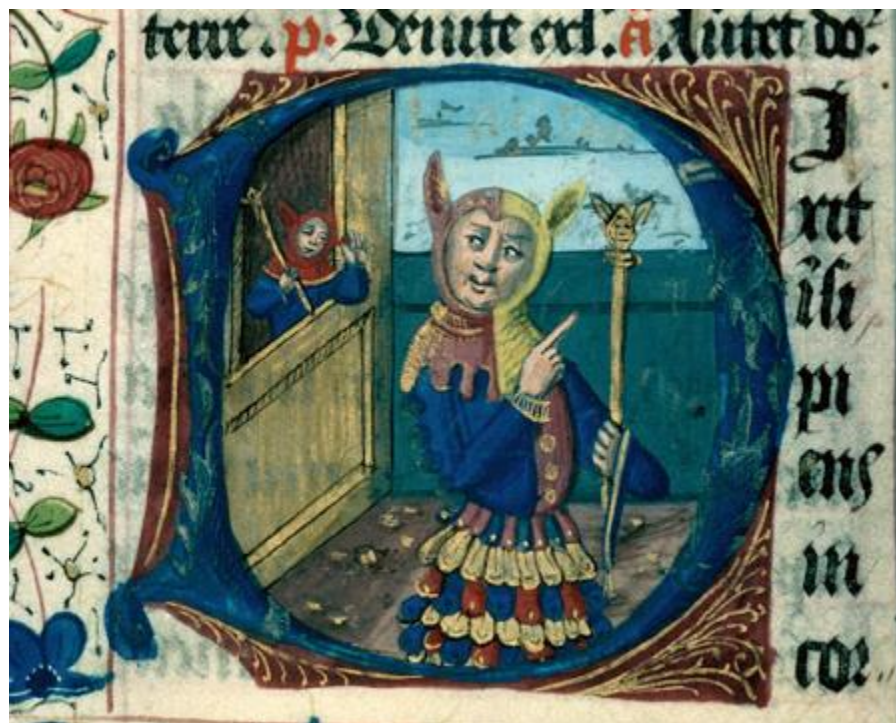 terre . p. Venite exl. ā. Aūtet do:
DI
xit
īsi
pi
ens
in
cor